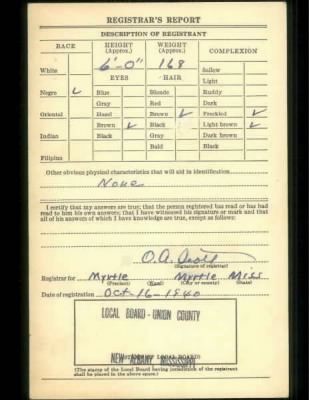 REGISTRAR'S REPORT
DESCRIPTION OF REGISTRANT
RACE HEIGHT (Approx.) WEIGHT (Approx.) COMPLEXION
White 6'-0" 168 Sallow
EYES HAIR Light
Negro ✓ Blue Blonde Ruddy
Gray Red Dark
Oriental Hazel Brown ✓ Freckled ✓
Brown ✓ Black Light brown ✓
Indian Black Gray Dark brown
Bald Black
Filipino
Other obvious physical characteristics that will aid in identification
None
I certify that my answers are true; that the person registered has read or has had
read to him his own answers; that I have witnessed his signature or mark and that
all of his answers of which I have knowledge are true, except as follows:
O. A.
(Signature of registrar)
Registrar for Myrtle Myrtle Miss
(Precinct) (Ward) (City or county) (State)
Date of registration Oct-16-1940
LOCAL BOARD - UNION COUNTY
NEW ALBANY MISSISSIPPI
(STAMP OF LOCAL BOARD)
(The stamp of the Local Board having jurisdiction of the registrant
shall be placed in the above space.)